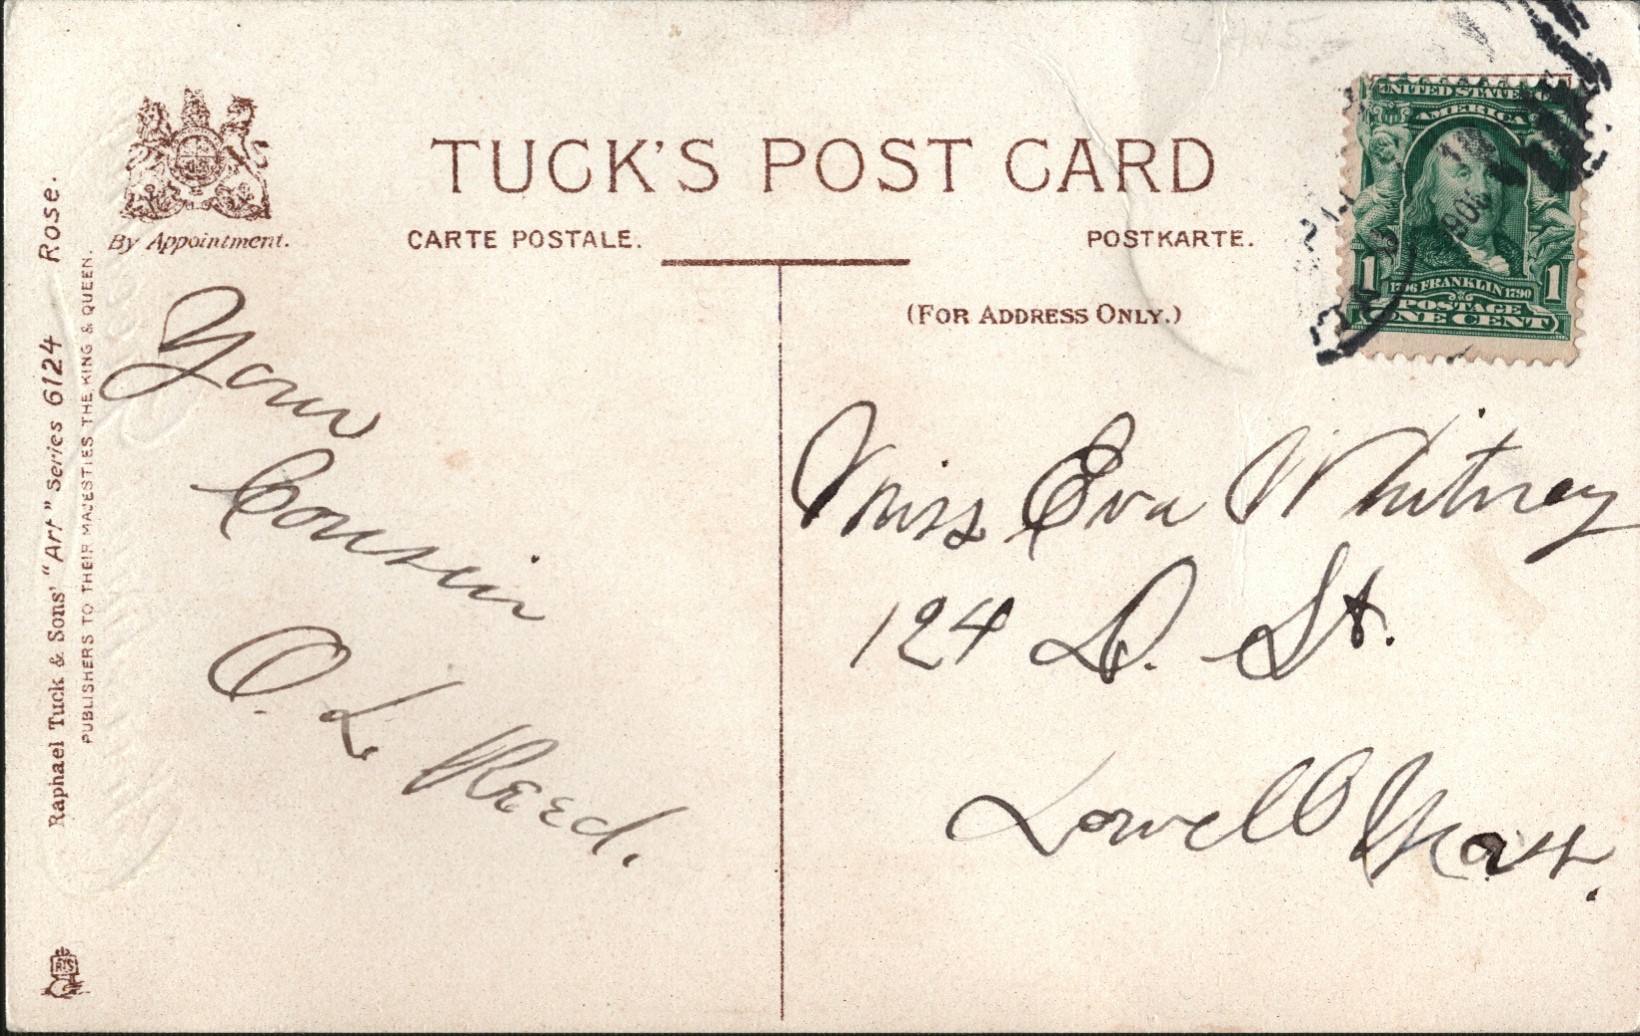 TUCK'S POST CARD
By Appointment.
CARTE POSTALE.
POSTKARTE.
(FOR ADDRESS ONLY.)
Raphael Tuck & Sons' "Art" Series 6124 Rose.
PUBLISHERS TO THEIR MAJESTIES THE KING & QUEEN.
Your
Cousin
O. L. Reed.
Miss Eva Whitney
124 D. St.
Lowell Mass.
UNITED STATES
AMERICA
1706 FRANKLIN 1790
1 POSTAGE 1
ONE CENT